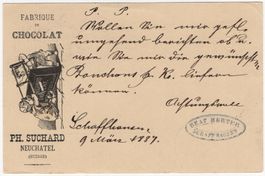 FABRIQUE
DE
CHOCOLAT
PH. SUCHARD
NEUCHATEL
(SUISSE)
P. P.
Wollen Sie mir gefl.
umgehend berichten ob u.
wie Sie mir die gewünschten
Bondrons p. K. liefern
können.
Achtungsvoll
Schaffhausen
9 März 1887.
BEAT HERTER
SCHAFFHAUSEN